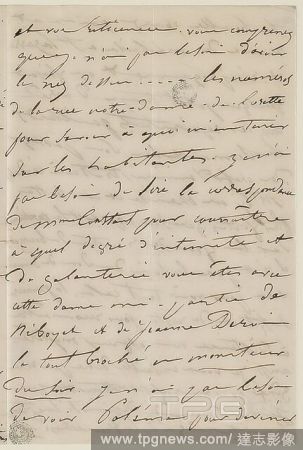 et vos réticences. vous comprenez
que je n'ai pas besoin d'avoir
le nez dessus ----- les numéros
de la rue notre-dame-de-lorette
pour savoir à quoi m'en tenir
sur les habitantes. je n'ai
pas besoin de lire la correspondance
de mme pour connaître
à quel degré d'intimité et
de galanterie vous êtes avec
cette dame mi-partie de
Niboyet et de Jeanne Deroin
le tout broché en moniteur
du soir. je n'ai pas besoin
de voir pour deviner
TPG
www.tpgnews.com / 達志影像